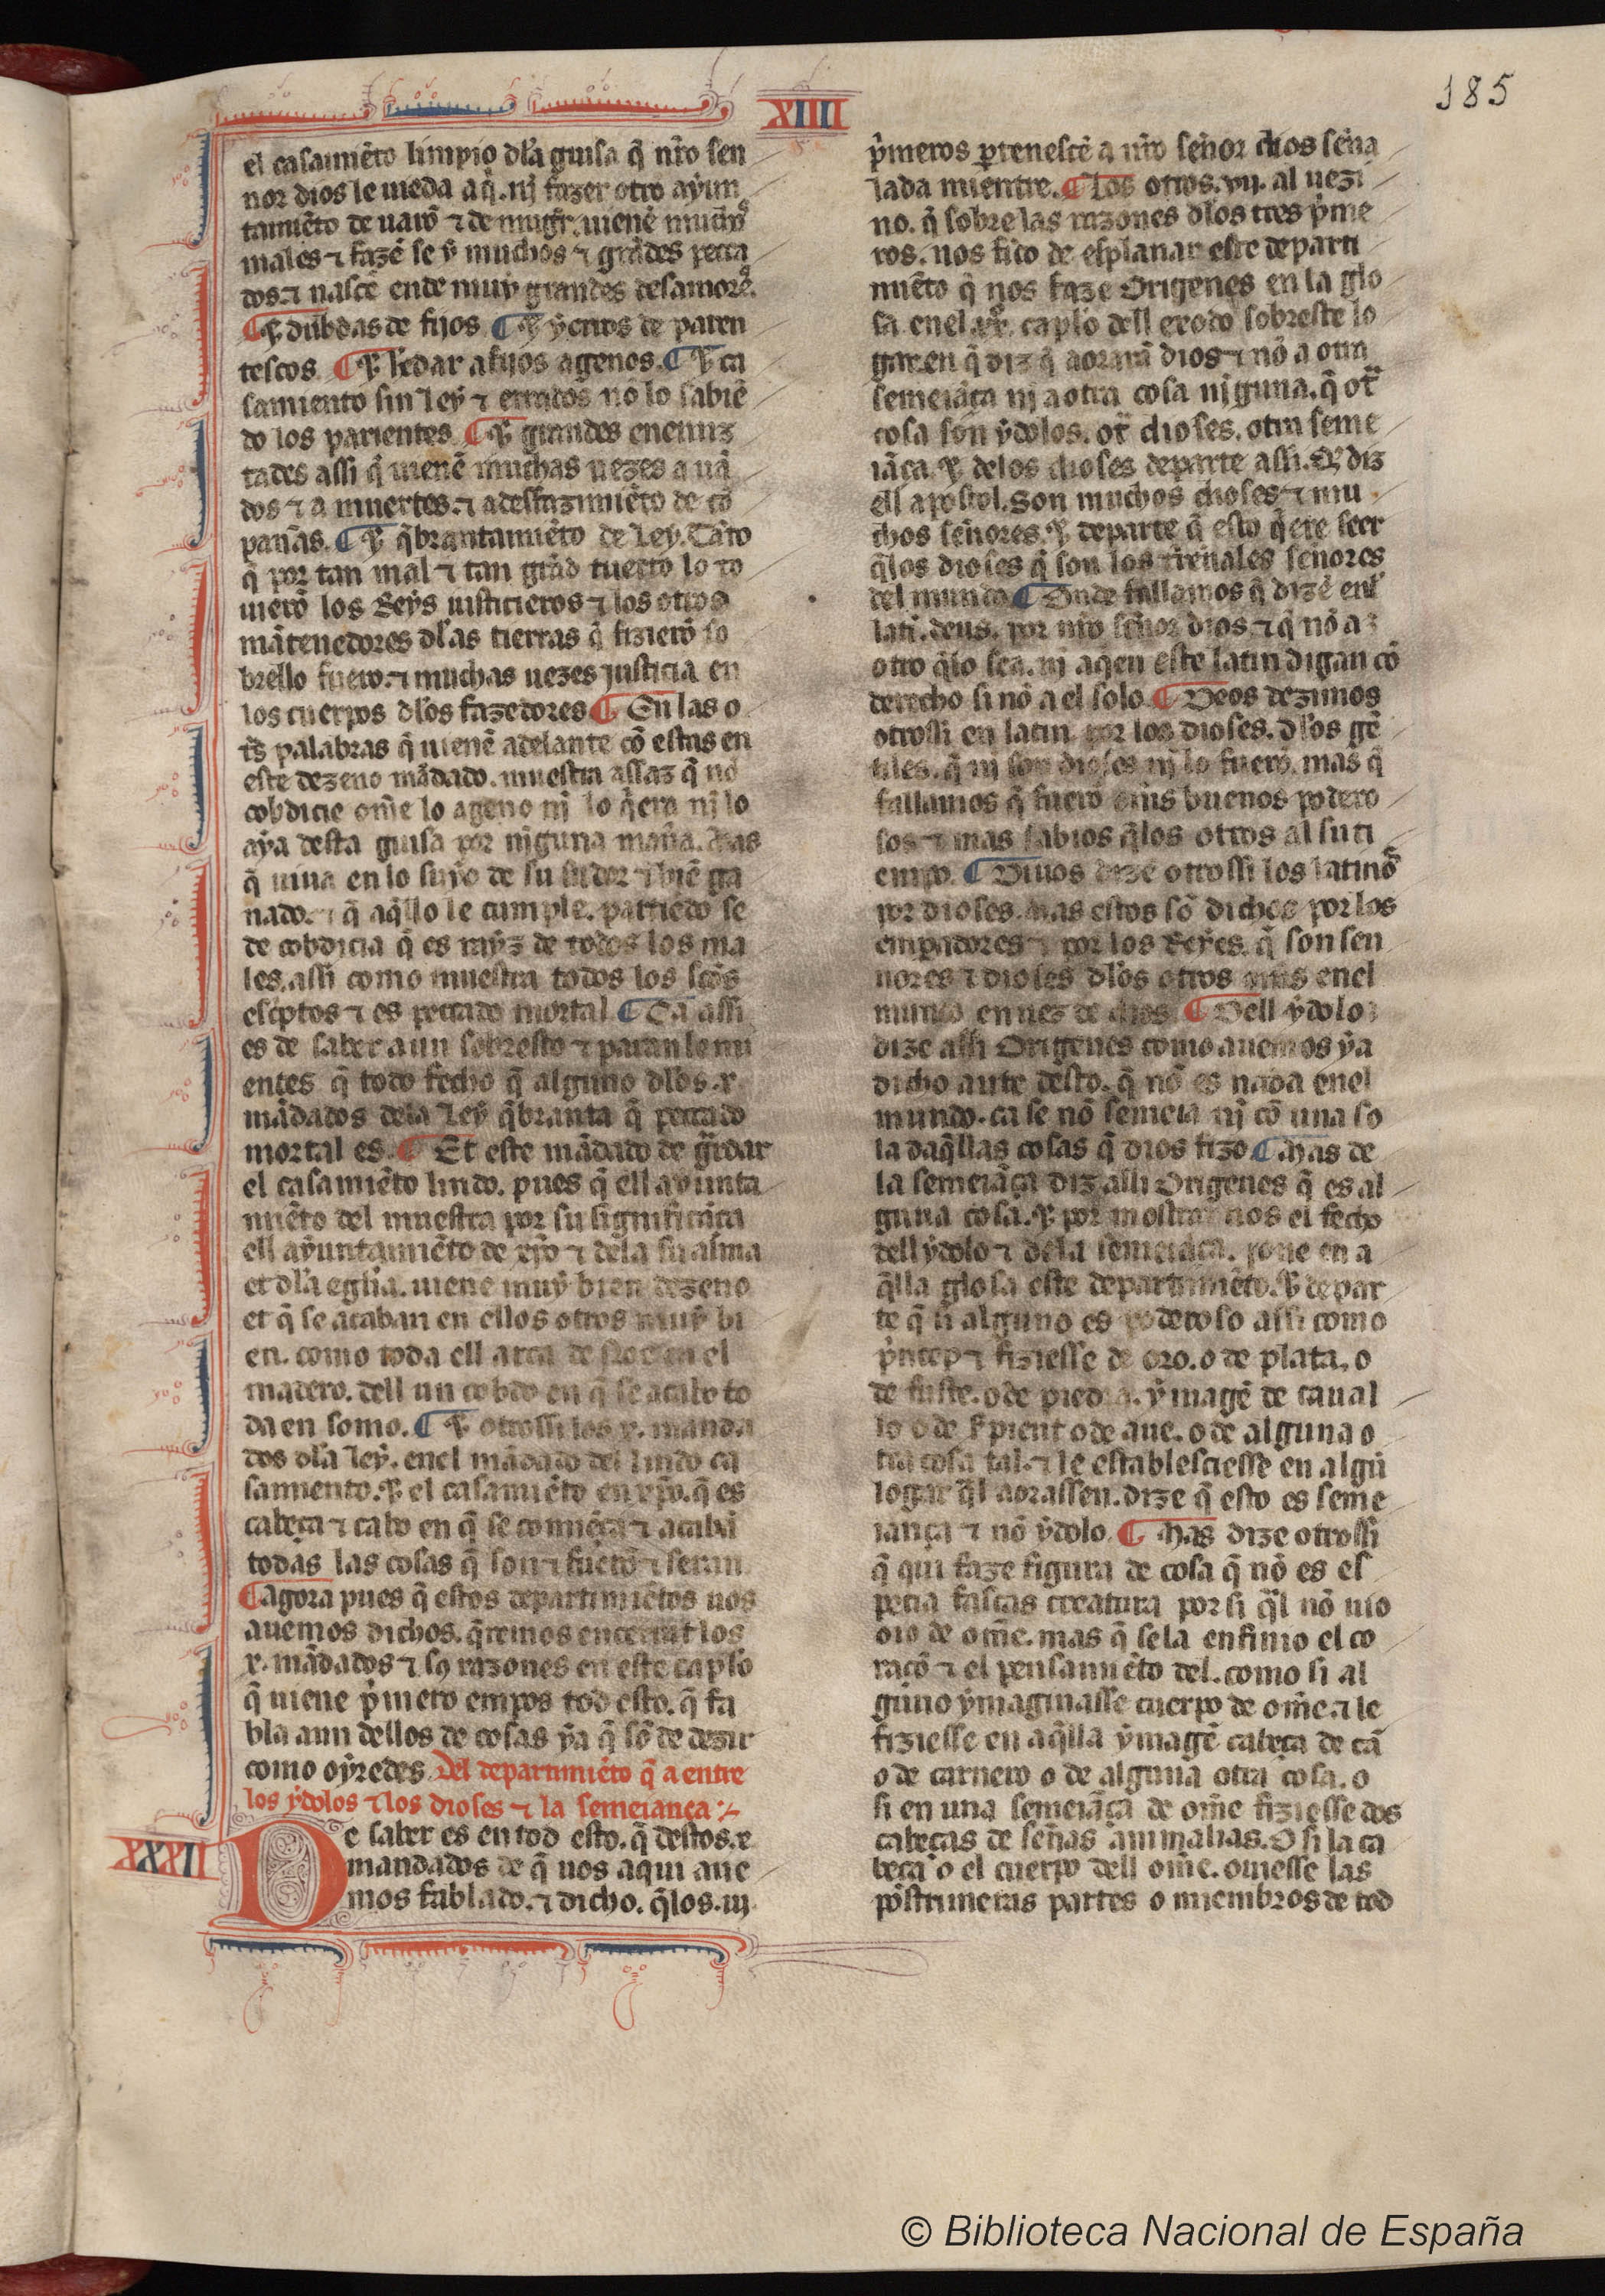 185
XIIII
el casamiẽto limpio dl̃a guisa q̃ nr̃o sen
nor dios le uieda aq̃. nj fazer otro ayun
tamiẽto de uarõ ⁊ de mugr̃. uienẽ muchos
males ⁊ fazẽ se y muchos ⁊ grãdes pecca
dos. ⁊ nascẽ ende muy grandes desamores.
¶ ⁊ dubdas de fijos ¶ ⁊ yerros de paren
tescos. ¶ ⁊ h̃edar a fijos agenos. ¶ ⁊ ca
samiento sin ley ⁊ errados nõ lo sabiẽ
do los parientes ¶ ⁊ grandes enemiz
tades assi q̃ uienẽ muchas uezes a uã
dos ⁊ a muertes. ⁊ a desfazimiẽto de cõ
pañas. ¶ ⁊ q̃brantamiẽto de ley. Tãto
q̃ por tan mal ⁊ tan grãd tuerto lo to
uierõ los Reys iusticieros ⁊ los otros
mãtenedores dl̃as tierras q̃ fizierõ so
brello fuero. ⁊ muchas uezes justicia en
los cuerpos dl̃os fazedores ¶ En las o
tr̃s palabras q̃ uienẽ adelante cõ estas en
este dezeno mãdado. muestra assaz q̃ nõ
cobdicie om̃e lo ageno nj lo q̃era nj lo
aya desta guisa por njguna mañã. Mas
q̃ uiua en lo suyo de su sudor ⁊ biẽ ga
nado. ⁊ q̃ aq̃llo le cumple. partiẽdo se
de cobdicia q̃ es rayz de todos los ma
les. assi como muestra todos los sc̃os
esc̃ptos ⁊ es peccado mortal ¶ Ca assi
es de saber aun sobresto ⁊ paran le mi
entes q̃ todo fecho q̃ alguno dl̃os .x.
mãdados dela ley q̃branta q̃ peccado
mortal es. ¶ Et este mãdado de gr̃dar
el casamiẽto lindo. pues q̃ ell ayunta
miẽto del muestra por su significãça
ell ayuntamiẽto de xp̃o ⁊ dela su alma
et dl̃a egl̃ia. uiene muy bien dezeno
et q̃ se acaban en ellos otros muy bi
en. como toda ell arca de Noe en el
madero. dell un cobdo en q̃ se acabo to
da en somo. ¶ ⁊ otrossi los .x. manda
dos dl̃a ley. enel mãdado del lindo ca
samiento. ⁊ el casamiẽto en xp̃o. q̃ es
cabeça ⁊ cabo en q̃ se comiẽça ⁊ acabã
todas las cosas q̃ son ⁊ fuerõ ⁊ seran
¶ agora pues q̃ estos departimiẽtos uos
auemos dichos. q̃remos encerrar los
.x. mãdados ⁊ sus razones en este capl̃o
q̃ uiene p̃mero empos tod esto. q̃ fa
bla aun dellos de cosas ya q̃ sõ de dezir
como oyredes. Del departimiẽto q̃ a entre
los ydolos ⁊ los dioses ⁊ la semeiança
XXXII
De saber es en tod esto. q̃ destos .x.
mandados de q̃ uos aqui aue
mos fablado. ⁊ dicho. q̃los .iij.
p̃meros ꝑtenescẽ a nr̃o señor dios seña
lada mientre. ¶ Los otros .vij. al uezi
no. q̃ sobre las razones dl̃os tres p̃me
ros. nos fico de esplanar este departi
miẽto q̃ nos faze Origenes en la glo
sa enel .xx. capl̃o dell exodo sobreste lo
gar. en q̃ diz q̃ aorarã dios ⁊ nõ a otra
semeiãça nj a otra cosa njguna. q̃ otr̃
cosa son ydolos. otr̃ dioses. otra seme
iãça. ⁊ delos dioses departe assi. Q̃ diz
ell apostol. Son muchos dioses ⁊ mu
chos señores. ⁊ departe q̃ esto q̃ere seer
q̃los dioses q̃ son los t̃renales señores
del mundo ¶ Onde fallamos q̃ dizẽ enl
latĩ. deus. por nr̃o señor dios ⁊ q̃ nõ a
otro q̃lo sea. nj aq̃en este latin digan cõ
derecho si nõ a el solo ¶ Deos dezimos
otrossi en latin por los dioses. dl̃os gẽ
tiles. q̃ nj son dioses nj lo fuerõ. mas q̃
fallamos q̃ fuerõ om̃s buenos podero
sos ⁊ mas sabios q̃los otros al su ti
empo. ¶ Diuos dizẽ otrossi los latinos
por dioses. mas estos sõ dichos por los
emp̃adores ⁊ por los Reyes. q̃ son sen
nores ⁊ dioses dl̃os otros om̃s enel
mundo en uez de dios ¶ Dell ydolo
dize assi Origenes como auemos ya
dicho ante desto. q̃ nõ es nada enel
mundo. ca se nõ semeia nj cõ una so
la daq̃llas cosas q̃ dios fizo ¶ Mas de
la semeiãça diz alli Origenes q̃ es al
guna cosa. ⁊ por mostrar nos el fecho
dell ydolo ⁊ dela semeiãça. pone en a
q̃lla glosa este departimiẽto. ⁊ depar
te q̃ si alguno es poderoso assi como
p̃ncep ⁊ fiziesse de oro. o de plata. o
de fuste. o de piedra. ymagẽ de caual
lo o de s̃pient o de aue. o de alguna o
tra cosa tal. ⁊ le establesciesse en algũ
logar q̃l aorassen. dize q̃ esto es seme
iança ⁊ nõ ydolo. ¶ Mas dize otrossi
q̃ qui faze figura de cosa q̃ nõ es es
pecia fascas creatura por si q̃l nõ uio
oio de om̃e. mas q̃ sela enfinio el co
raçõ ⁊ el pensamiẽto del. como si al
guno ymaginasse cuerpo de om̃e. ⁊ le
fiziesse en aq̃lla ymagẽ cabeça de cã
o de carnero o de alguna otra cosa. o
si en una semeiãça de om̃e fiziesse dos
cabeças de señas animalias. O si la ca
beça o el cuerpo dell om̃e. ouiesse las
postrimeras partes o miembros de tod
© Biblioteca Nacional de España